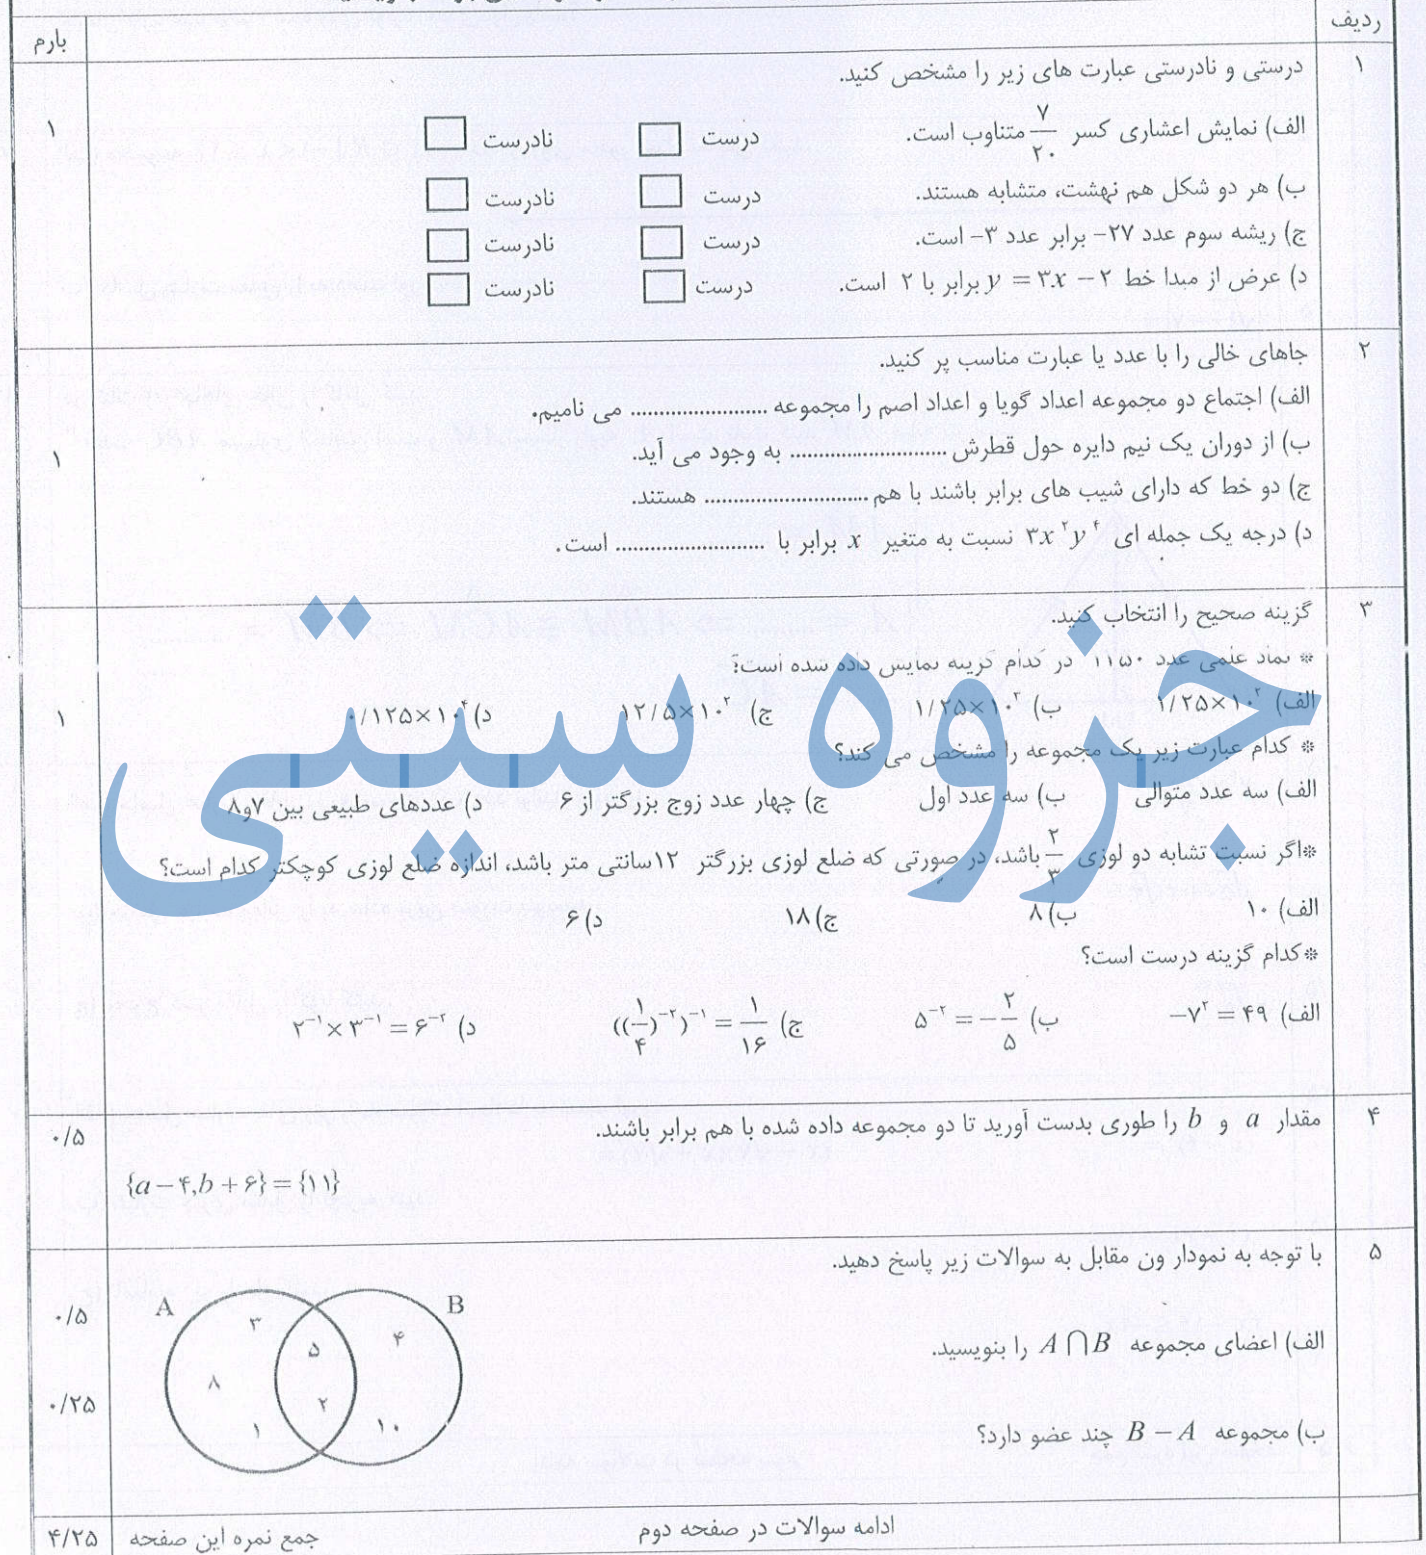 ردیف
بارم
۱
درستی و نادرستی عبارت های زیر را مشخص کنید.
الف) نمایش اعشاری کسر ۷/۲۰ متناوب است. درست نادرست
۱
ب) هر دو شکل هم نهشت، متشابه هستند. درست نادرست
ج) ریشه سوم عدد ۲۷− برابر عدد ۳− است. درست نادرست
د) عرض از مبدا خط y = ۳x − ۲ برابر با ۲ است. درست نادرست
۲
جاهای خالی را با عدد یا عبارت مناسب پر کنید.
الف) اجتماع دو مجموعه اعداد گویا و اعداد اصم را مجموعه ........................ می نامیم.
ب) از دوران یک نیم دایره حول قطرش ........................... به وجود می آید.
۱
ج) دو خط که دارای شیب های برابر باشند با هم ............................ هستند.
د) درجه یک جمله ای ۳x^۲y^۴ نسبت به متغیر x برابر با .......................... است.
۳
گزینه صحیح را انتخاب کنید.
* نماد علمی عدد در کدام گزینه نمایش داده شده است؟
الف) ۱/۲۵×۱۰^۲ ب) ۱/۲۵×۱۰^۳ ج) ۱۲/۵×۱۰^۲ د) ۰/۱۲۵×۱۰^۴
۱
* کدام عبارت زیر یک مجموعه را مشخص می کند؟
الف) سه عدد متوالی ب) سه عدد اول ج) چهار عدد زوج بزرگتر از ۶ د) عددهای طبیعی بین ۷و۸
*اگر نسبت تشابه دو لوزی ۲/۳ باشد، در صورتی که ضلع لوزی بزرگتر ۱۲سانتی متر باشد، اندازه ضلع لوزی کوچکتر کدام است؟
الف) ۱۰ ب) ۸ ج) ۱۸ د) ۶
*کدام گزینه درست است؟
الف) −۷^۲ = ۴۹ ب) ۵^−۲ = −۲/۵ ج) ((۱/۴)^−۲)^−۱ = ۱/۱۶ د) ۲^−۱ × ۳^−۱ = ۶^−۲
جزوه سیتی
۴
مقدار a و b را طوری بدست آورید تا دو مجموعه داده شده با هم برابر باشند.
۰/۵
{a − ۴, b + ۶} = {۱۱}
۵
با توجه به نمودار ون مقابل به سوالات زیر پاسخ دهید.
A B
۳ ۵ ۴
۸ ۲
۱ ۱۰
۰/۵
الف) اعضای مجموعه A ∩ B را بنویسید.
۰/۲۵
ب) مجموعه B − A چند عضو دارد؟
ادامه سوالات در صفحه دوم
جمع نمره این صفحه
۴/۲۵